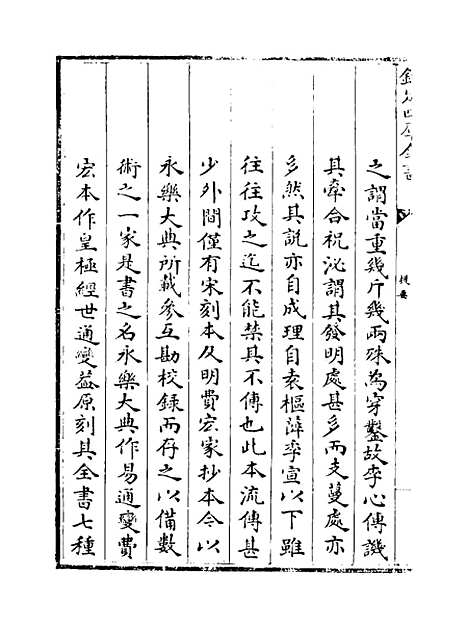 欽定四庫全書
提要
之謂當重幾斤幾兩殊為穿鑿故李心傳譏
其牽合祝泌謂其發明處甚多而支蔓處亦
多然其說亦自成理自袁樞薛季宣以下雖
往往攻之迄不能禁其不傳也此本流傳甚
少外間僅有宋刻本及明費宏家抄本今以
永樂大典所載參互勘校録而存之以備數
術之一家是書之名永樂大典作易通變費
宏本作皇極經世通變葢原刻其全書七種